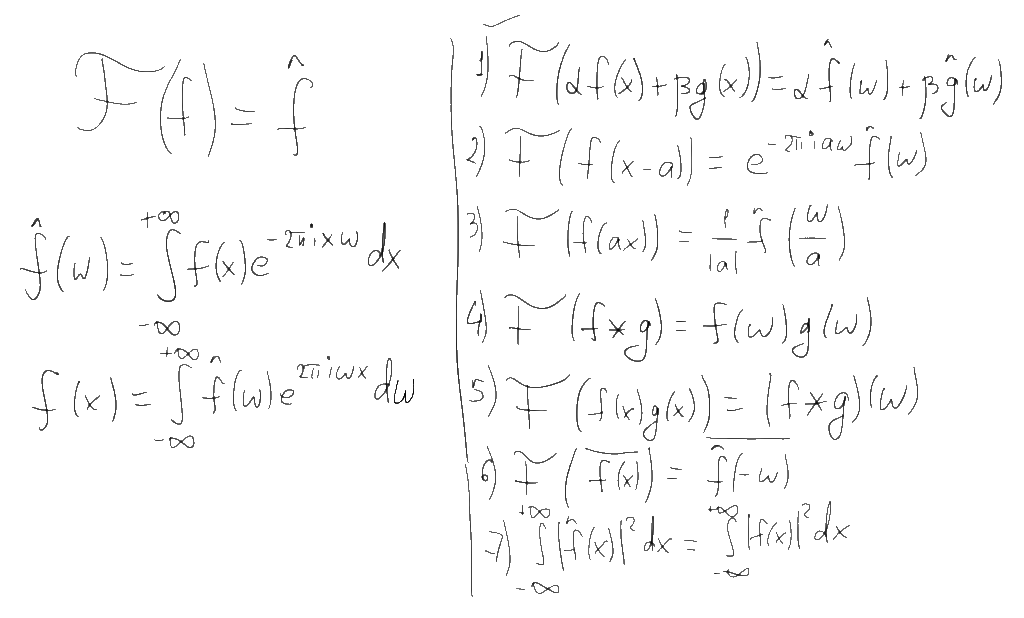 ℱ(f) = f̂
f̂(w) = ∫_{-∞}^{+∞} f(x)e^{-2πixw} dx
f(x) = ∫_{-∞}^{+∞} f̂(w)e^{2πiwx} dw
1) ℱ(αf(x) + βg(x)) = αf̂(w) + βĝ(w)
2) ℱ(f(x-a)) = e^{-2πiaw} f̂(w)
3) ℱ(f(ax)) = \frac{1}{|a|} f̂(\frac{w}{a})
4) ℱ(f*g) = f(w)g(w)
5) ℱ(f(x)g(x)) = (f*g)(w)
6) ℱ(\overline{f(x)}) = \overline{f̂(-w)}
7) ∫_{-∞}^{+∞} |f̂(x)|² dx = ∫_{-∞}^{+∞} |f(x)|² dx